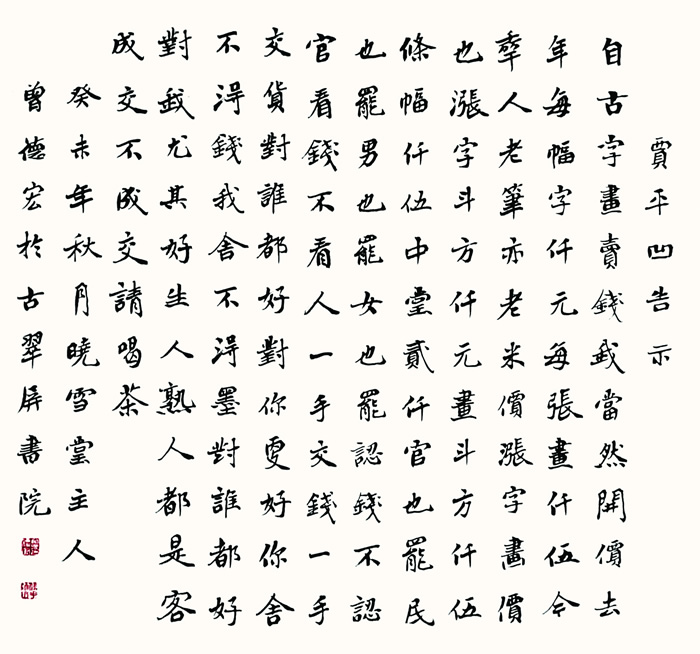 賈平凹告示
自古字畫賣錢我當然開價去
年每幅字仟元每張畫仟伍今
秊人老筆亦老米價漲字畫價
也漲字斗方仟元畫斗方仟伍
條幅仟伍中堂貳仟官也罷民
也罷男也罷女也罷認錢不認
官看錢不看人一手交錢一手
交貨對誰都好對你更好你舍
不得錢我舍不得墨對誰都好
對我尤其好生人熟人都是客
成交不成交請喝茶
癸未年秋月曉雪堂主人
曾德宏於古翠屏書院